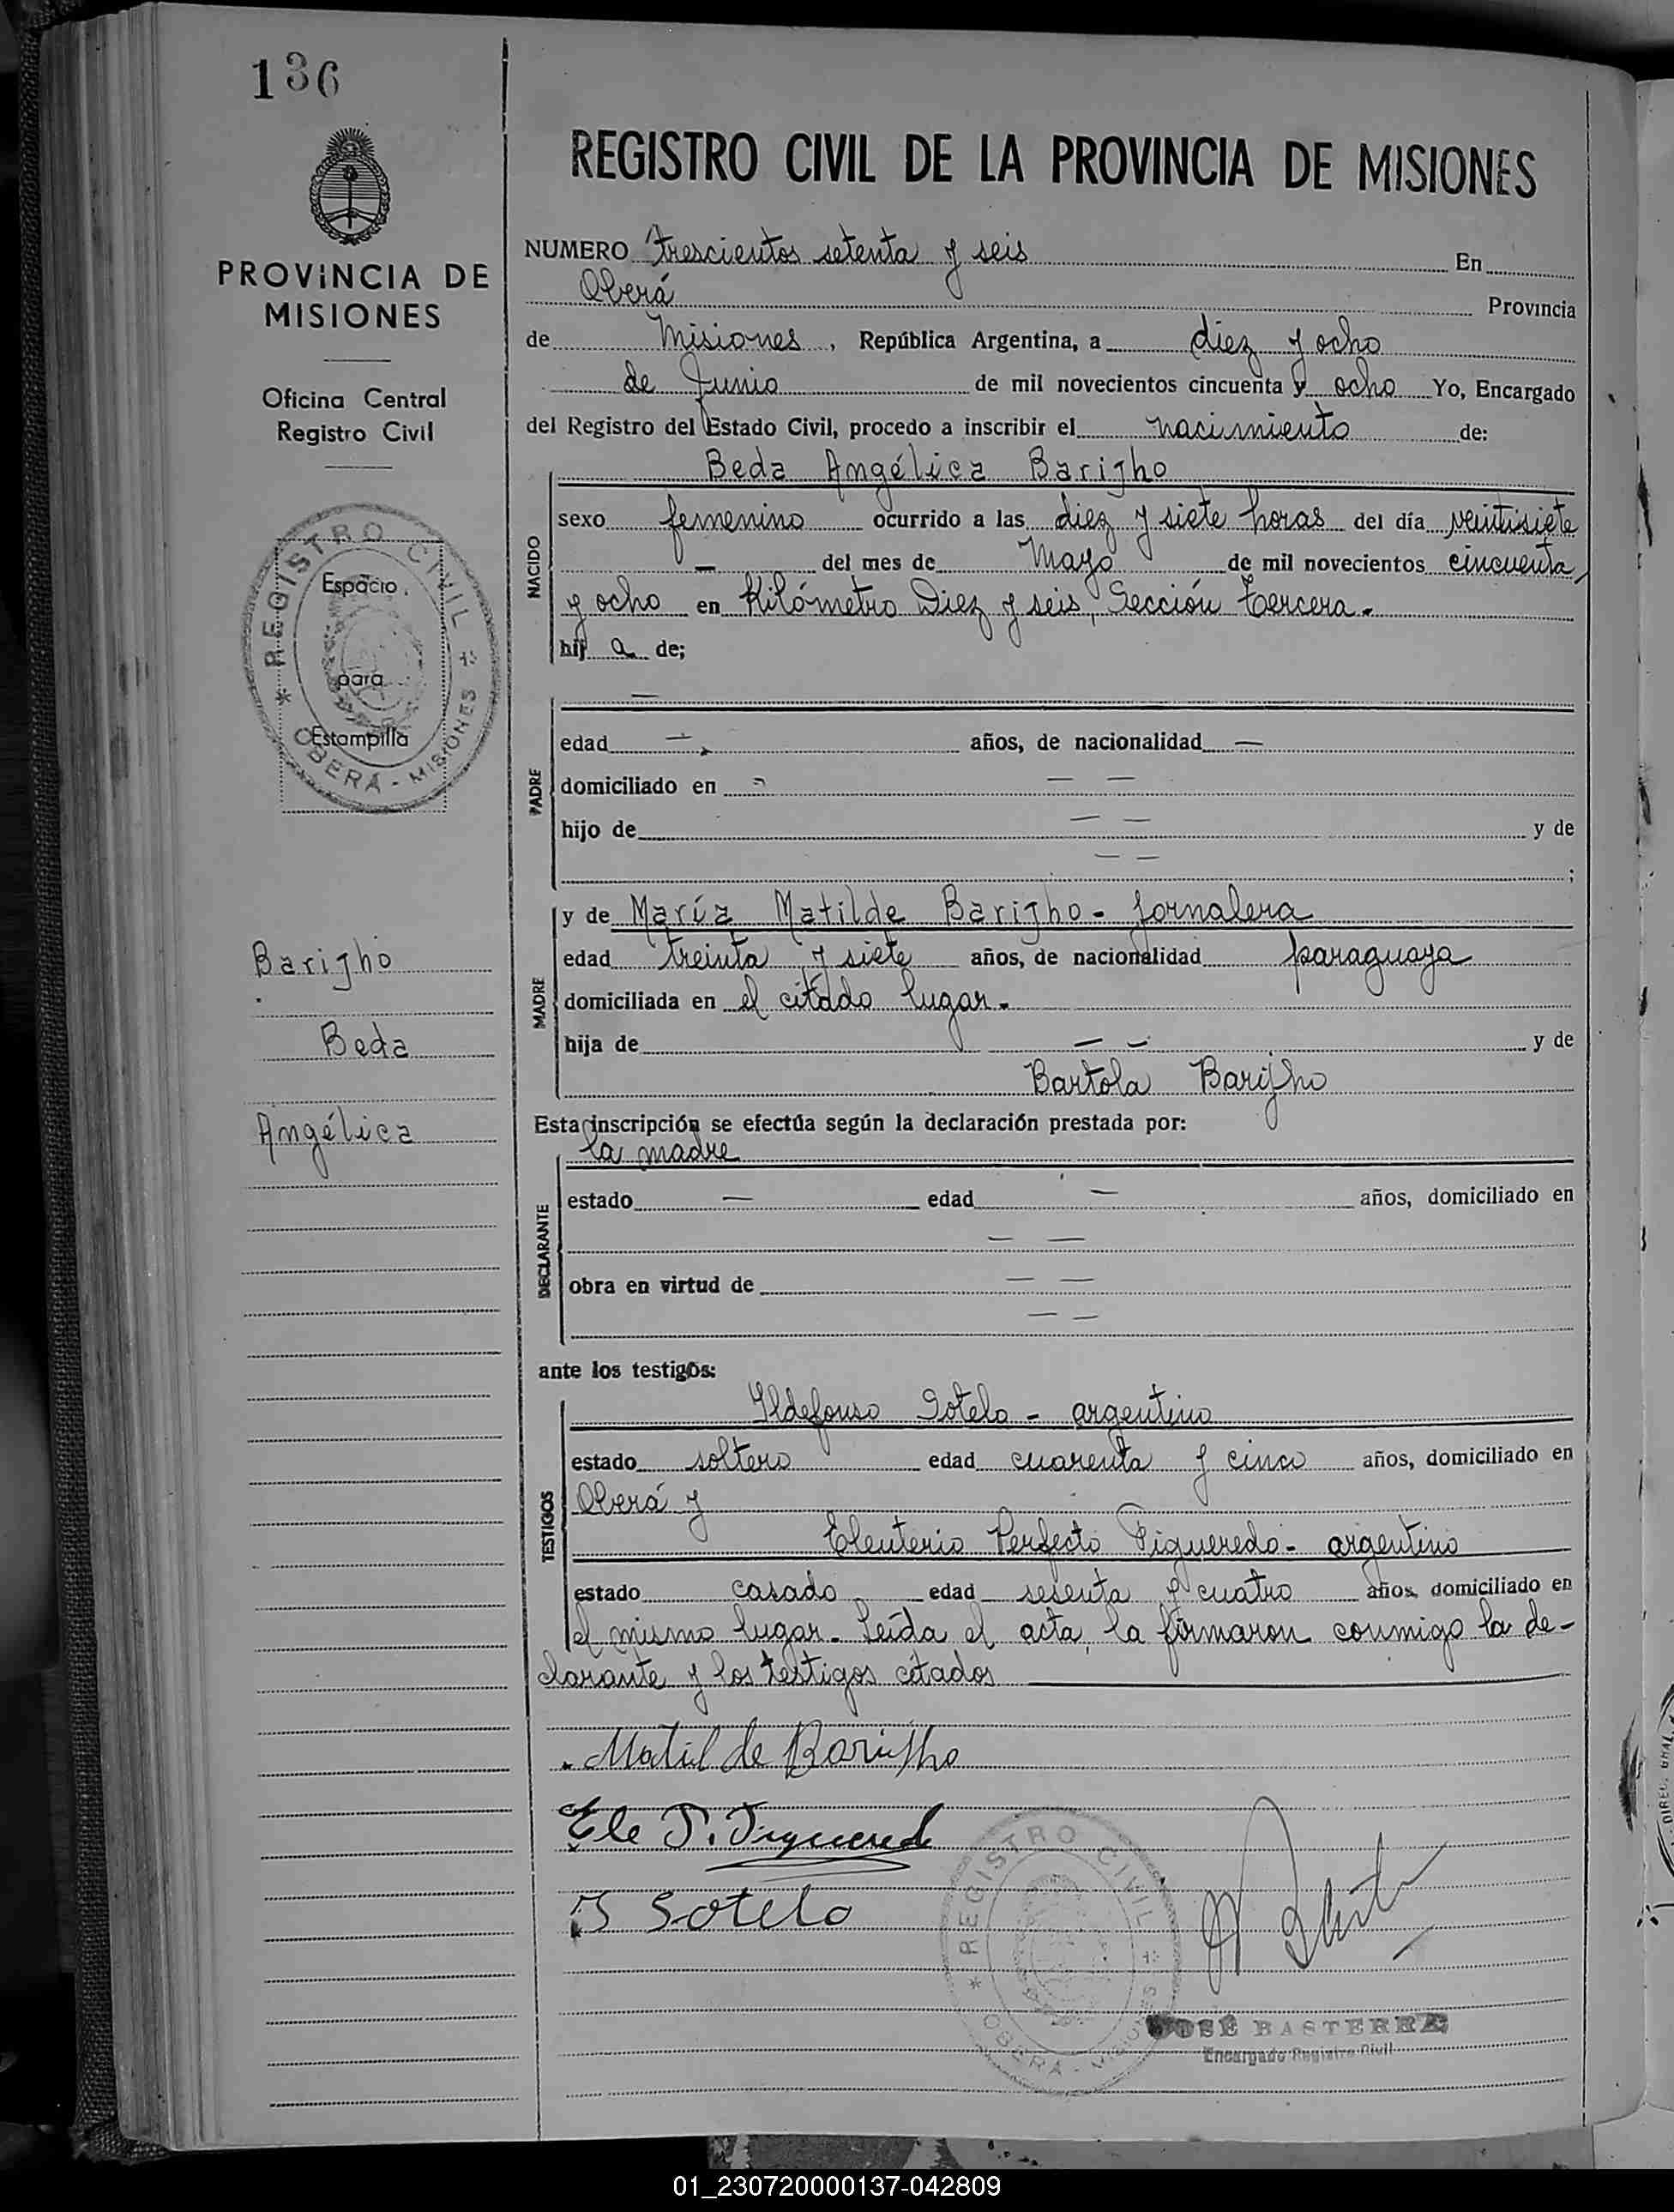 136
PROVINCIA DE
MISIONES
Oficina Central
Registro Civil
* REGISTRO CIVIL *
OBERÁ - MISIONES
Espacio
para
Estampilla
Barijho
Beda
Angélica
REGISTRO CIVIL DE LA PROVINCIA DE MISIONES
NUMERO trescientos setenta y seis En
Oberá Provincia
de Misiones, República Argentina, a diez y ocho
de Junio de mil novecientos cincuenta y ocho Yo, Encargado
del Registro del Estado Civil, procedo a inscribir el nacimiento de:
Beda Angélica Barijho
NACIDO
sexo femenino ocurrido a las diez y siete horas del día veintisiete
— del mes de Mayo de mil novecientos cincuenta
y ocho en Kilómetro Diez y seis, Sección tercera.
hij a de;
—
PADRE
edad — años, de nacionalidad —
domiciliado en — —
hijo de — — y de
— — ;
MADRE
y de María Matilde Barijho - jornalera
edad treinta y siete años, de nacionalidad paraguaya
domiciliada en el citado lugar.
hija de — — y de
Bartola Barijho
Esta inscripción se efectúa según la declaración prestada por:
la madre
DECLARANTE
estado — edad — años, domiciliado en
— —
obra en virtud de — —
— —
ante los testigos:
TESTIGOS
Ildefonso Sotelo - argentino
estado soltero edad cuarenta y cinco años, domiciliado en
Oberá y
Eleuterio Perfecto Figueredo - argentino
estado casado edad sesenta y cuatro años domiciliado en
el mismo lugar. Leída el acta, la firmaron conmigo la de-
clarante y los testigos citados
Matilde Barijho
Ele P. Figueredo
I Sotelo
* REGISTRO CIVIL *
OBERÁ - MISIONES
JOSÉ BASTERRA
Encargado Registro Civil
01_230720000137-042809